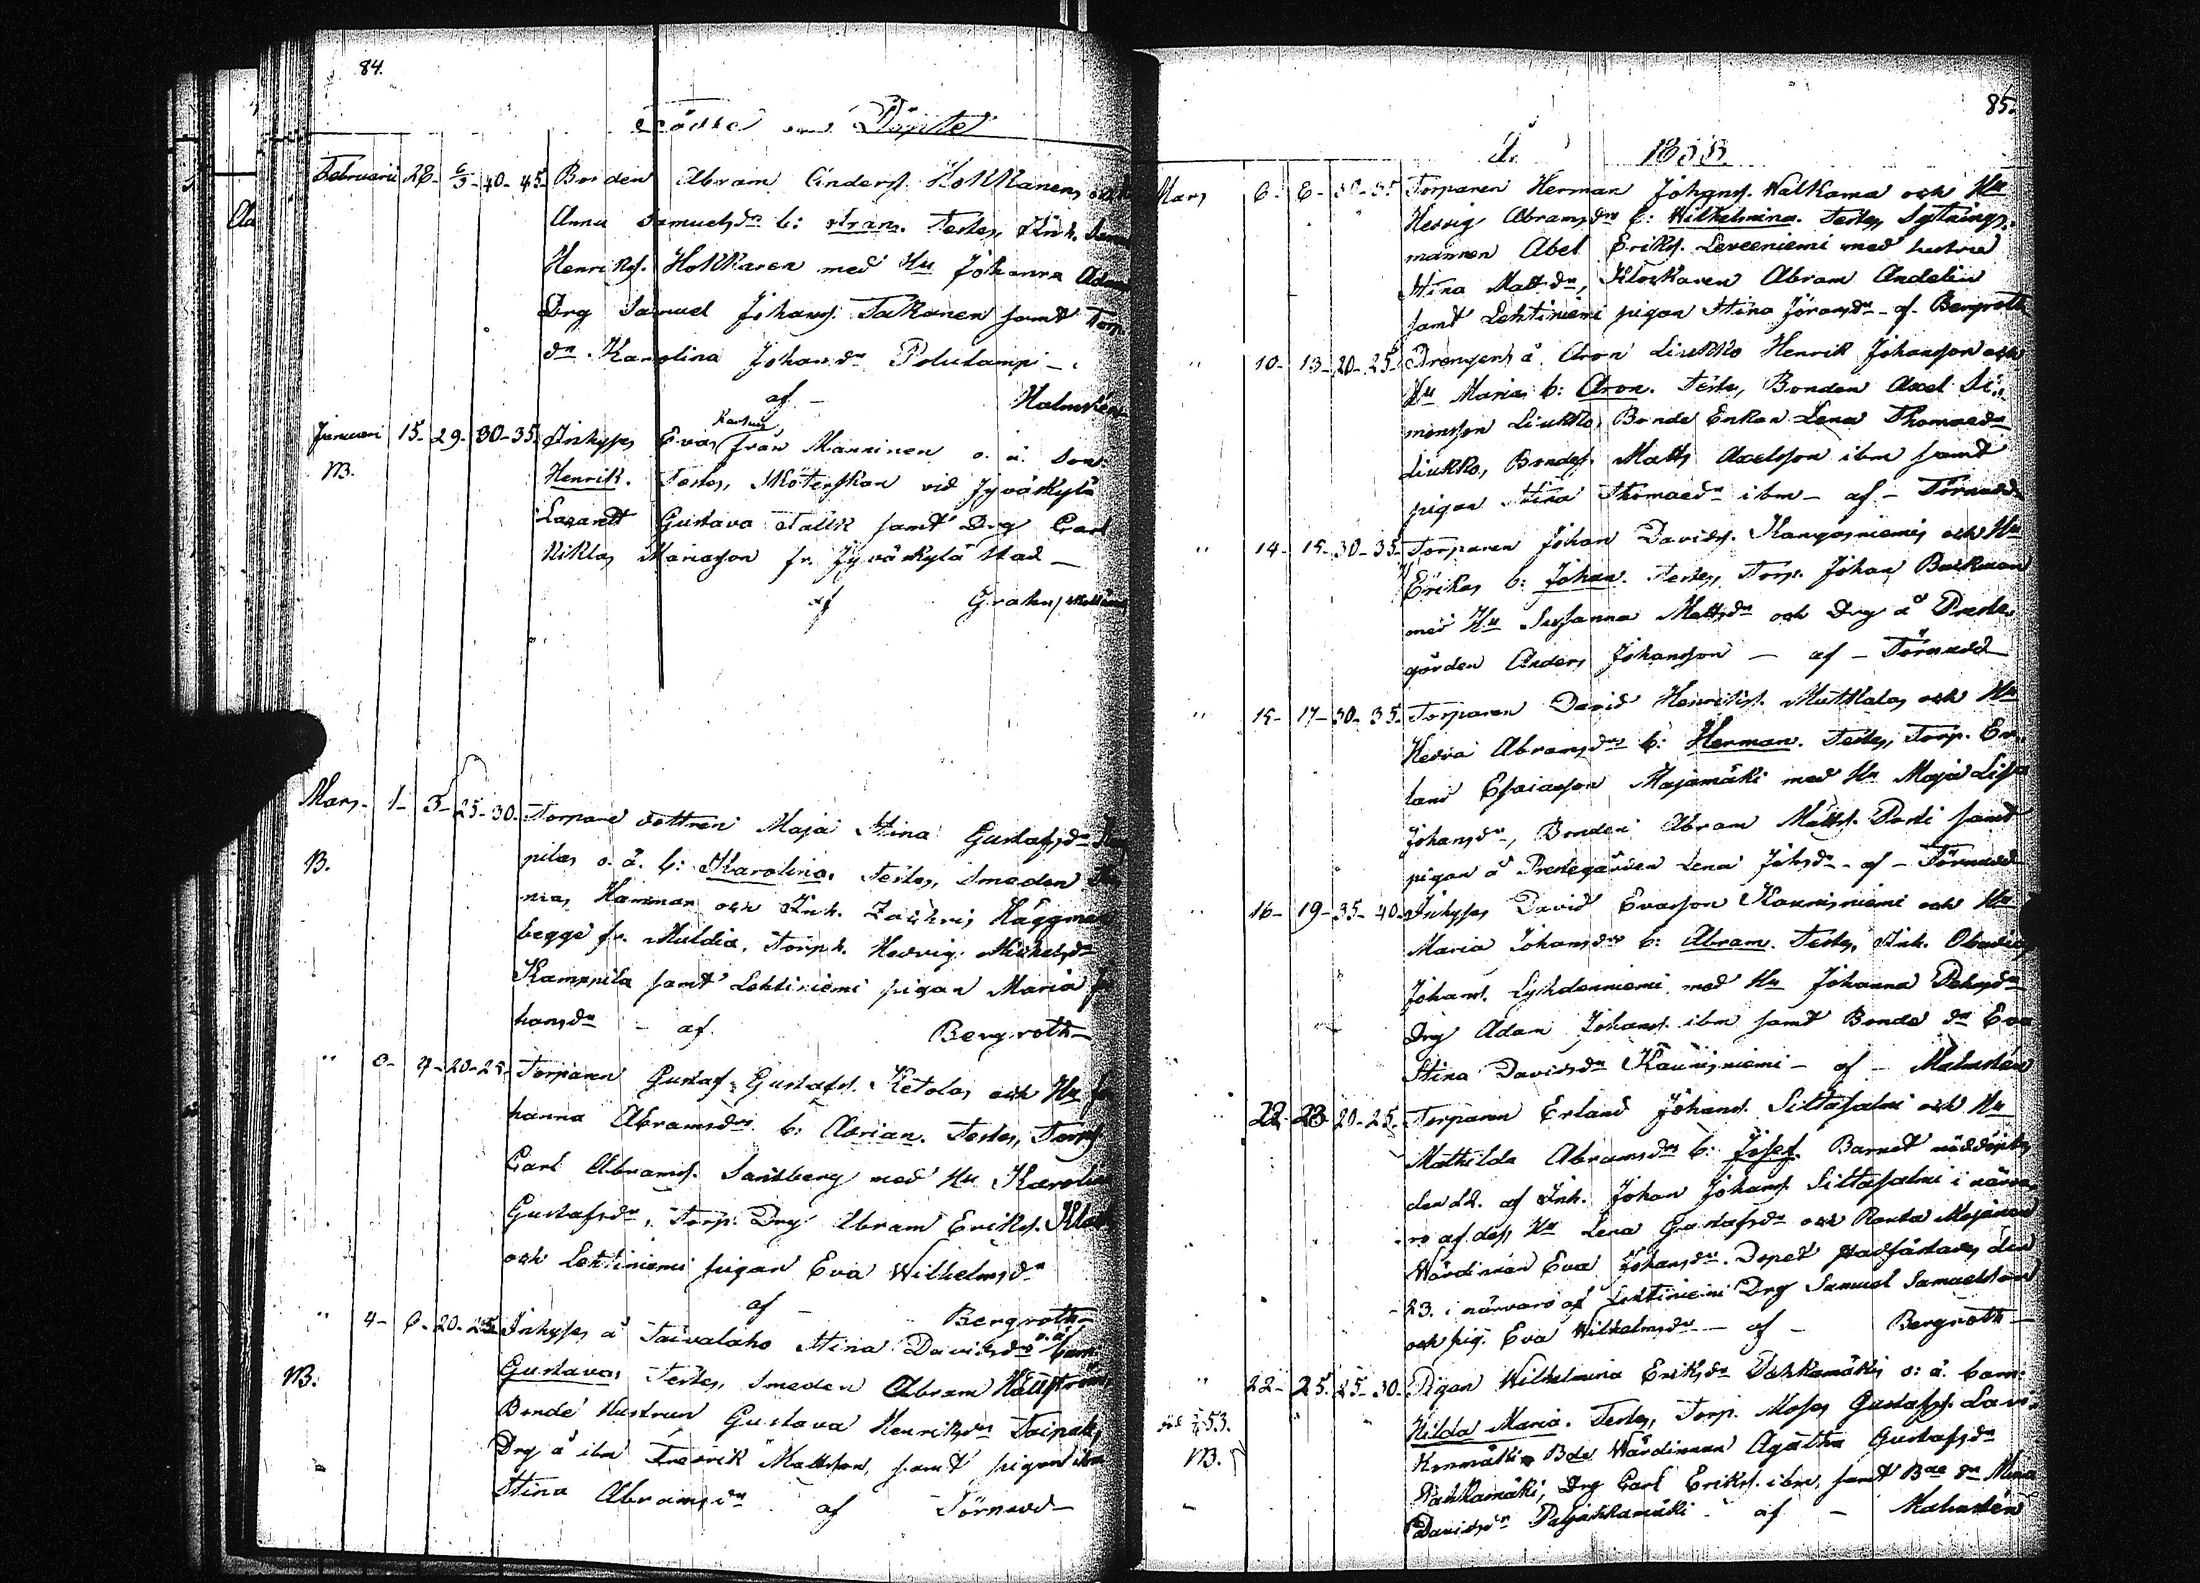 84.
Födde och Döpte
Februari 28- 6/3- 40-45- Bonden Abram Anderss. Hokkanen, och
Anna Samuelsdr b: Fran. Testes, Inh.
Henrikss. Hokkanen med Hu Johanna Adam
Drg Samuel Johanss. Takanen samt Torp.
dr. Karolina Johansdr Polulampi -
af - Malmstén
Januari 15- 29- 30-35- Inhyses Eva från Manninen o. ä. son
NB. Henrik. Testes, Sköterskan vid Jyväskylä
Lazarett Gustava Tallk samt Drg Carl
Niklas Mariasson fr. Jyväskylä Stad -
af Grahn
Mars- 1- 3- 25-30- Torpare dottren Maja Stina Gustafsdr
B. pila o. ä. b: Karolina. Testes, Smeden
nias Hamman och Inh. Zachris Häggman
begge fr. Muldia, Torp.h. Hedvig Michelsdr
Kamppila samt Lehtiniemi pigan Maria Jo
hansdr - af Bergroth-
" 4- 20-25- Torparen Gustaf Gustafss. Ketola och Hu Jo
hanna Abramsdr b: Adrian. Testes, Torp.
Carl Abramss. Sandberg med Hu Karolina
Gustafsdr, Torp. Drg Abram Erikss.
och Lehtiniemi pigan Eva Wilhelmsdr
af - Bergroth-
" 4- 6- 20-25- Inhyses å Taivalaho Stina Davidsdr o.ä. barn
NB. Gustava, Testes, Smeden Abram Hällström,
Bonde Hustrun Gustava Henriksdr Taipale,
Drg å ibm Fredrik Mattsson, samt pigan ibm
Stina Abramsdr af Törnudd-
85.
År 1855
Mars 6- 8- 30-35 Torparen Herman Johanss. Walkama och Hu
Hedvig Abramsdr b: Wilhelmina. Testes, Sytnings-
mannen Abel Erikss. Leveeniemi med hustru
Stina Mattsdr, Klockaren Abram Andelin
samt Lehtiniemi pigan Stina Jöransdr - af - Bergroth
" 10- 13- 20-25- Drengen å Aron Liukko Henrik Johansson och
Hu Maria b: Aron. Testes, Bonden Axel Si-
monsson Liukko, Bonde Enkan Lena Thomasdr
Liukko, Bondes. Matts Axelsson ibm samt
pigan Stina Thomasdr ibm - af - Törnudd
" 14- 15- 30-35- Torparen Johan Davidss. Kangasniemi och Hu
Erika b: Johan. Testes, Torp. Johan Backman
med Hu Susanna Mattsdr och Drg å Preste-
gården Anders Johansson - af - Törnudd
" 15- 17- 30-35- Torparen David Henrikss. Muttkala och Hu
Hedva Abramsdr b: Herman. Testes, Torp. Er-
land Esaiasson Majamäki med Hu Maja Lisa
Johansdr, Bonden Abram Mattss. Porti samt
pigan å Prestegården Lena Johsdr - af - Törnudd
" 16- 19- 35-40- Inhyses David Evasson Kaunisniemi och Hu
Maria Johansdr b: Abram. Testes, Inh. Obadias
Johanss. Lychdenniemi med Hu Johanna
Drg Adam Johanss. ibm samt Bonde dr Eva
Stina Davidsdr Kaunisniemi - af - Malmstén
" 22- 23- 20-25- Torparen Erland Johanss. Siltasalmi och Hu
Mathilda Abramsdr b: Josef. Barnet nöddöptes
den 22. af Inh. Johan Johanss. Siltasalmi i närva-
ro af dess Hu Lena Gustafsdr och Ranta Majanen
Wärdinnan Eva Johansdr. Dopet stadfästades den
23. i närvaro af Lehtiniemi Drg Samuel Samuelsson
och pig. Eva Wilhelmsdr - af - Bergroth-
" 22- 25- 25-30- Pigan Wilhelmina Eriksdr Pahkamäki o: ä. barn:
53. Hilda Maria. Testes, Torp. Moses Gustafss.
NB. Wärdinnan Agatha Gustafsdr
Pahkamäki, Drg Carl Erikss. ibm, samt Bde dr Mina
Davidsdr af - Malmstén